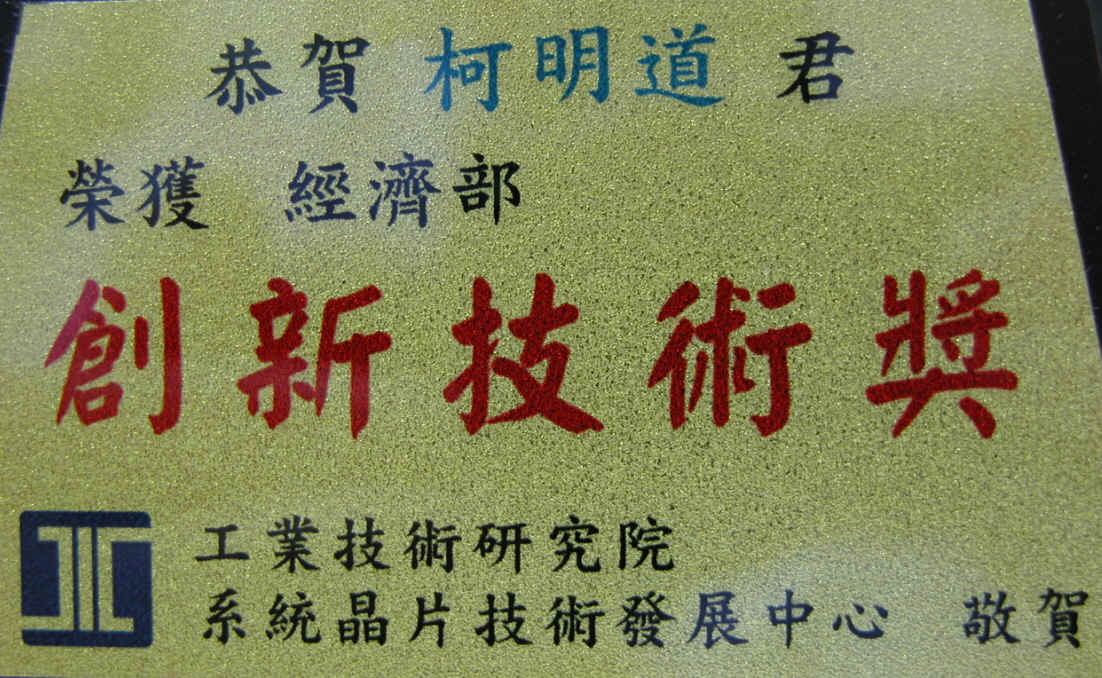 恭賀 柯明道 君
榮獲 經濟部
創新技術獎
工業技術研究院
系統晶片技術發展中心 敬賀